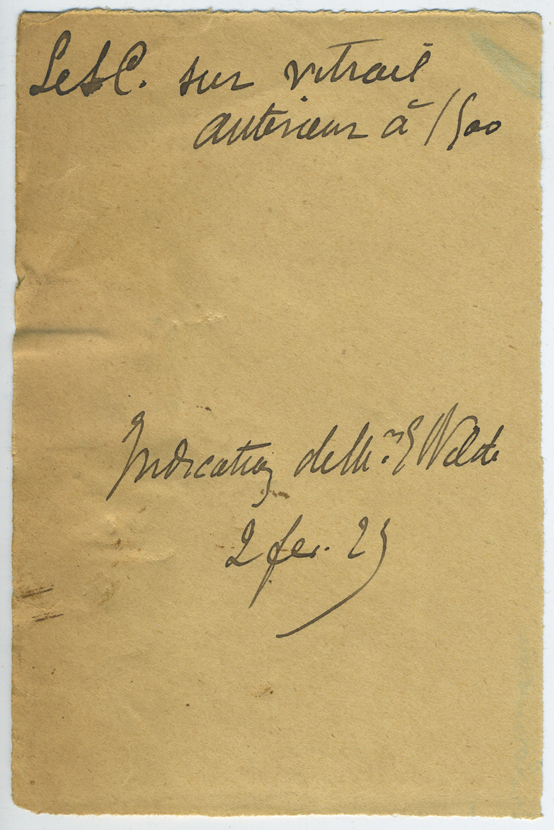 Le S C. sur vitrail
antérieur à 1500
Indication de M. E Wilde
2 fev. 25